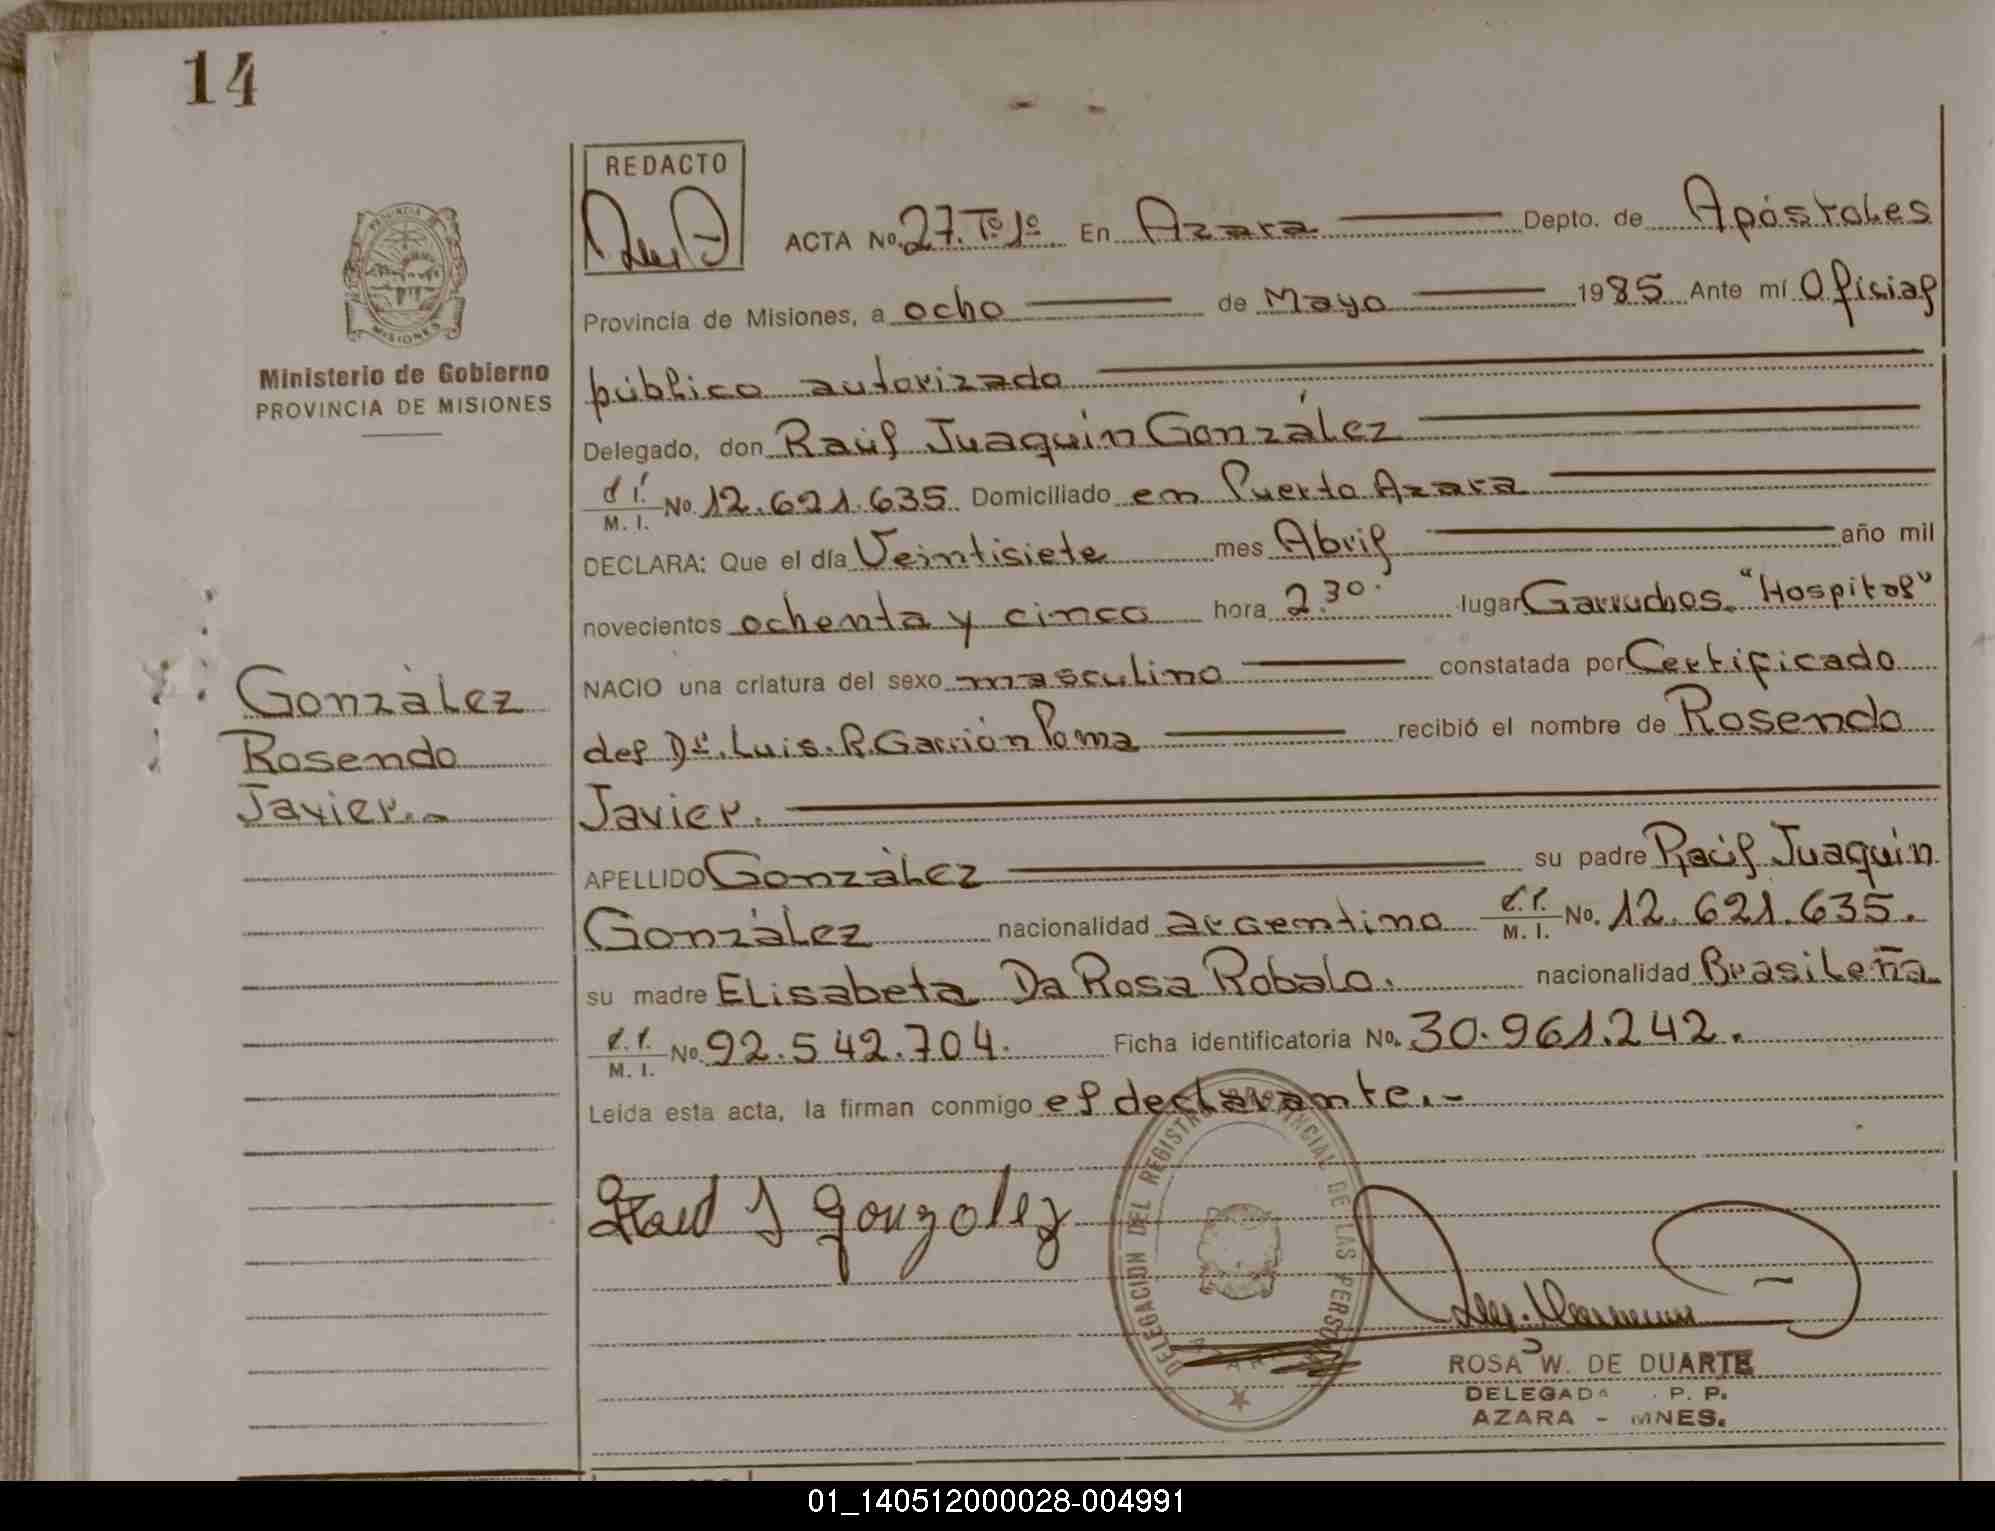 14
REDACTO
ACTA No. 27. Tº 1º En Azara Depto. de Apóstoles
Provincia de Misiones, a ocho de Mayo 1985 Ante mí Oficial
público autorizado
Delegado, don Raúl Juaquín González
d.i. M. I. No. 12.621.635 Domiciliado en Puerto Azara
DECLARA: Que el día Veintisiete mes Abril año mil
novecientos ochenta y cinco hora 2.30. lugar Garruchos. "Hospital"
NACIO una criatura del sexo masculino constatada por Certificado
del Dr. Luis. R. Garrión Poma recibió el nombre de Rosendo
Javier.
APELLIDO González su padre Raúl Juaquín
González nacionalidad argentino M. I. No. 12.621.635.
su madre Elisabeta Da Rosa Robalo. nacionalidad Brasileña
M. I. No. 92.542.704. Ficha identificatoria No. 30.961.242.
Leida esta acta, la firman conmigo el declarante.-
Raul J gonzalez
PROVINCIA DE
MISIONES
Ministerio de Gobierno
PROVINCIA DE MISIONES
González
Rosendo
Javier.-
DELEGACION DEL REGISTRO PROVINCIAL DE LAS PERSONAS
AZARA
ROSA W. DE DUARTE
DELEGADA P. P.
AZARA - MNES.
01_140512000028-004991